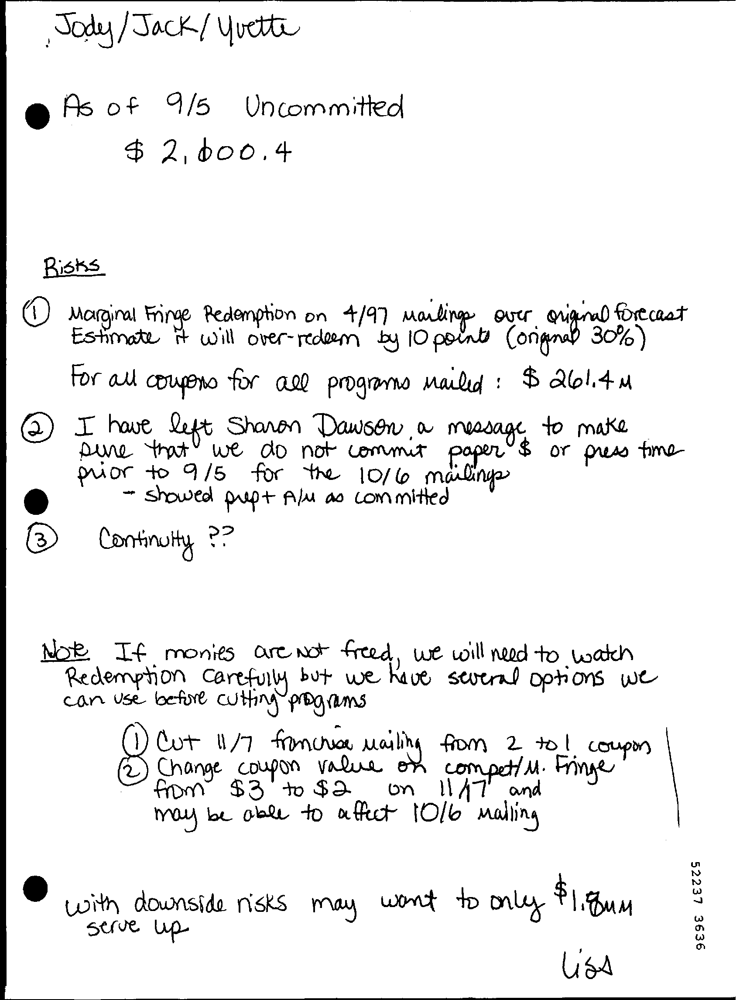 Jody/Jack/Yvette
As of 9/5 Uncommitted
$ 2,600.4
Risks
① Marginal Fringe Redemption on 4/97 mailings over original forecast
Estimate it will over-redeem by 10 points (original 30%)
For all coupons for all programs mailed : $ 261.4 M
② I have left Sharon Dawson a message to make
sure that we do not commit paper $ or press time
prior to 9/5 for the 10/6 mailings
- showed prep + A/M as committed
③ Continuity ??
Note If monies are not freed, we will need to watch
Redemption carefully but we have several options we
can use before cutting programs
① Cut 11/7 franchise mailing from 2 to 1 coupon
② Change coupon value on compet/M. Fringe
from $3 to $2 on 11/17 and
may be able to affect 10/6 mailing
with downside risks may want to only $1.8MM
serve up
Lisa
52237 3636